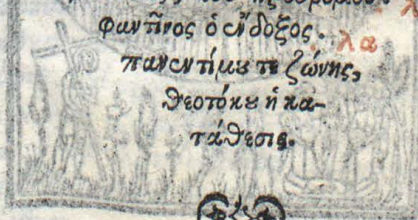 φαντῖνος ὁ ἔνδοξος.
λα
πανεντίμου τε ζώνης,
θεοτόκου ἡ κα-
τάθεσις.